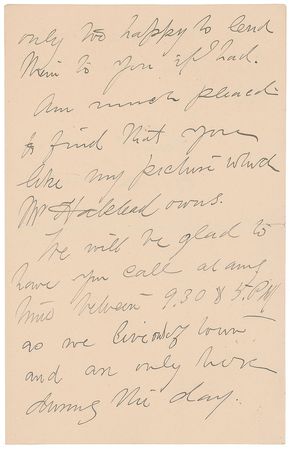 only too happy to lend
them to you if I had.
Am much pleased
to find that you
like my picture which
Mr owns.
We will be glad to
have you call at any
time between 9.30 & 5. PM
as we live out of town
and are only here
during the day.